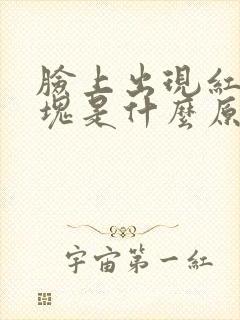 臉上出現紅
塊是什麼原
宇宙第一紅